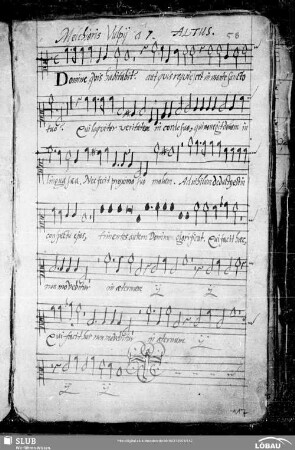 Melchioris Vulpij à 7. ALTUS. 58
Domine quis habitabit aut quis requiescet in monte sancto
tuo. Qui loquitur veritatem in corde suo, qui non egit dolum in
lingua sua, Nec fecit proximo suo malum. Ad nihilum deductus est in
conspectu ejus, timentes autem Dominum glorificat. Qui facit haec,
non movebitur in aeternum ij ij
Qui facit haec non movebitur in aeternum ij
ij ij
117
SLUB
Wir führen Wissen.
LOBAU